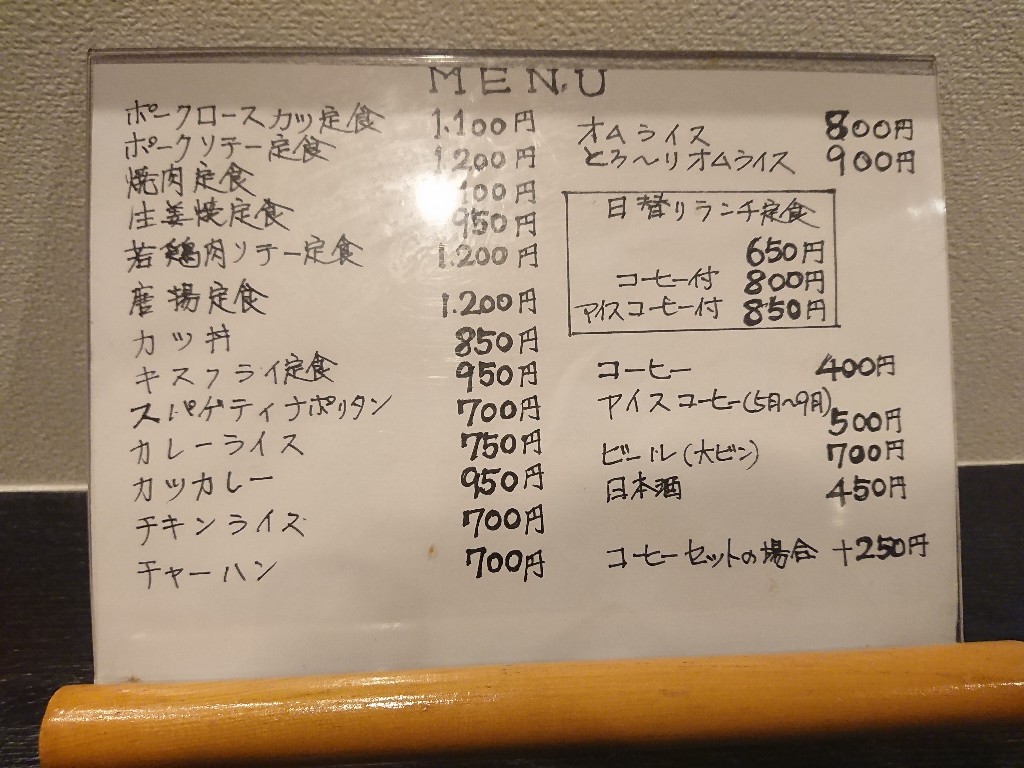 MENU
ポークロースカツ定食 1.100円
ポークソテー定食 1.200円
焼肉定食 100円
生姜焼定食 950円
若鶏肉ソテー定食 1.200円
唐揚定食 1.200円
カツ丼 850円
キスフライ定食 950円
スパゲティナポリタン 700円
カレーライス 750円
カツカレー 950円
チキンライス 700円
チャーハン 700円
オムライス 800円
とろ〜りオムライス 900円
日替りランチ定食
650円
コーヒー付 800円
アイスコーヒー付 850円
コーヒー 400円
アイスコーヒー(5月〜9月) 500円
ビール(大ビン) 700円
日本酒 450円
コーヒーセットの場合 +250円